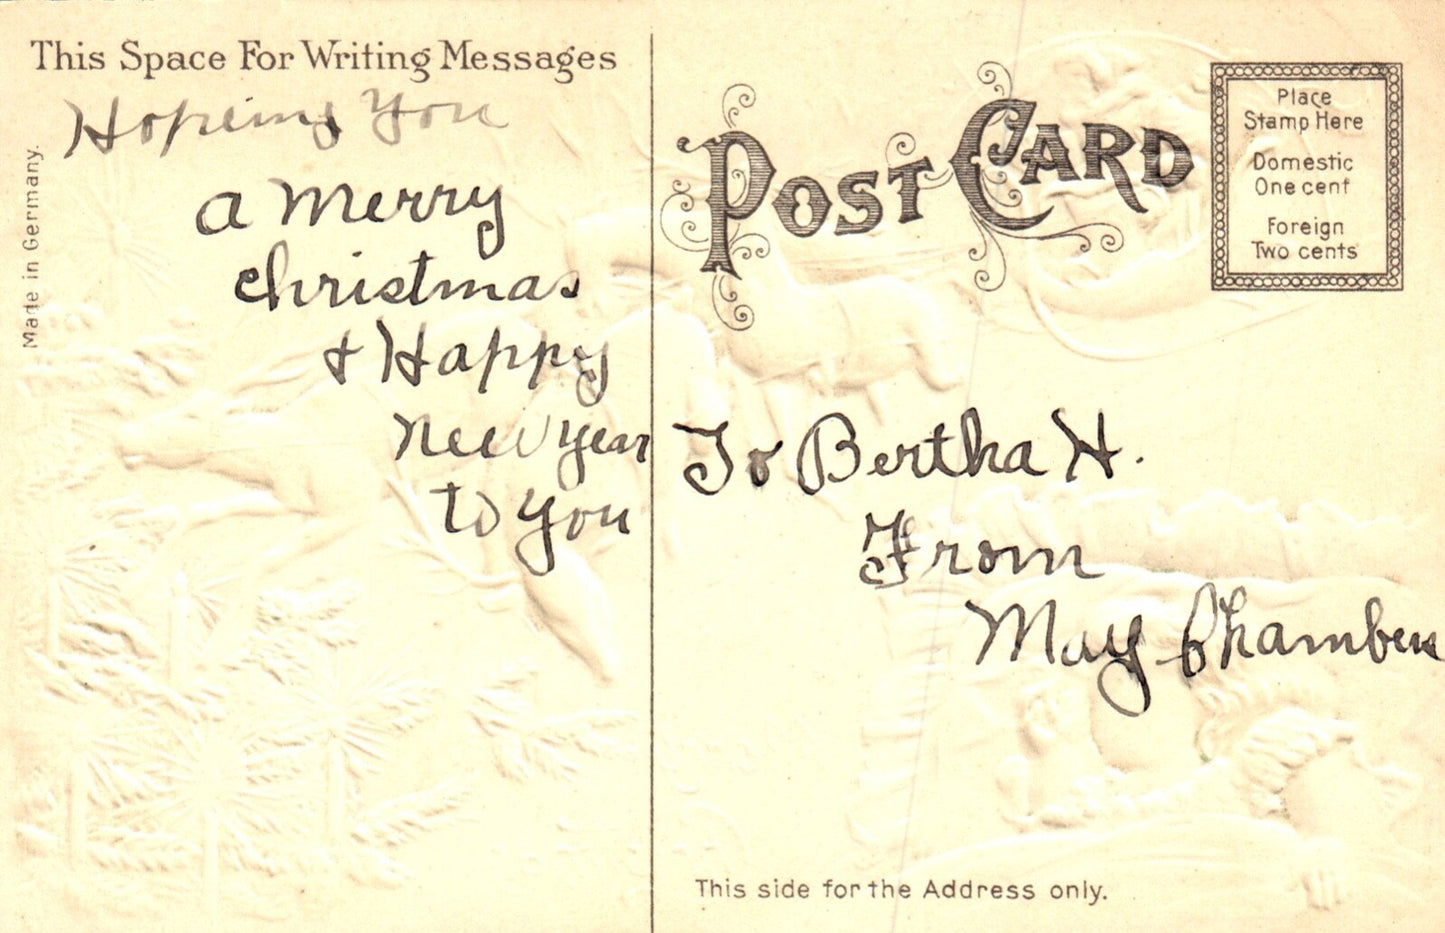 This Space For Writing Messages
Hopeing You
a Merry
Christmas
+ Happy
New Year
to you
Made in Germany.
POST CARD
Place
Stamp Here
Domestic
One cent
Foreign
Two cents
To Bertha H.
From
May Chambers
This side for the Address only.